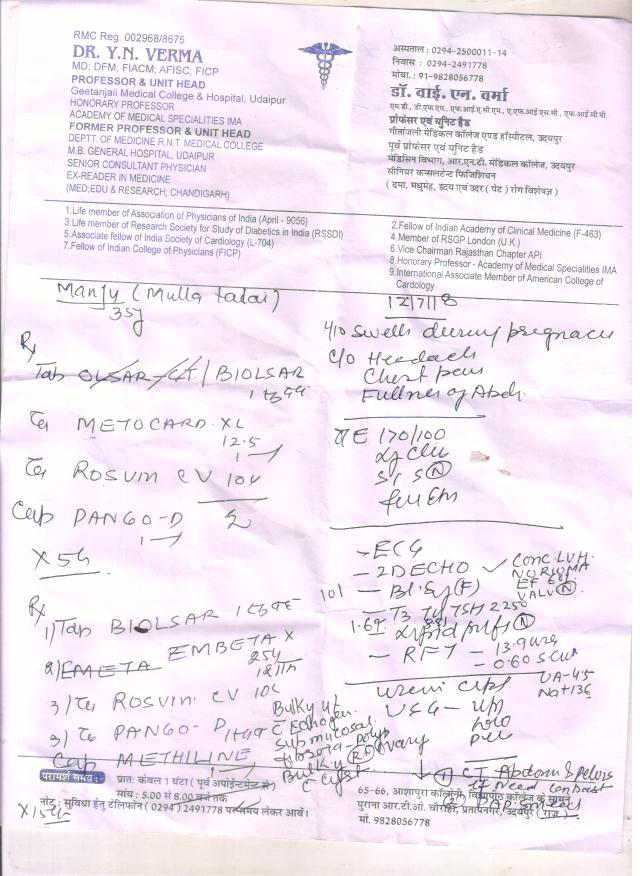 RMC Reg. 002968/8675
DR. Y.N. VERMA
MD; DFM; FIACM; AFISC; FICP
PROFESSOR & UNIT HEAD
Geetanjali Medical College & Hospital, Udaipur
HONORARY PROFESSOR
ACADEMY OF MEDICAL SPECIALITIES IMA
FORMER PROFESSOR & UNIT HEAD
DEPTT. OF MEDICINE R.N.T. MEDICAL COLLEGE
M.B. GENERAL HOSPITAL, UDAIPUR
SENIOR CONSULTANT PHYSICIAN
EX-READER IN MEDICINE
(MED;EDU & RESEARCH; CHANDIGARH)
अस्पताल : 0294-2500011-14
निवास : 0294-2491778
मोबा. : 91-9828056778
डॉ. वाई. एन. वर्मा
एम.डी., डी.एफ.एम., एफ.आई.ए.सी.एम., ए.एफ.आई.एस.सी., एफ.आई.सी.पी.
प्रोफेसर एवं यूनिट हैड
गीतांजली मेडिकल कॉलेज एण्ड हॉस्पीटल, उदयपुर
पूर्व प्रोफेसर एवं यूनिट हैड
मेडिसिन विभाग, आर.एन.टी. मेडिकल कॉलेज, उदयपुर
सीनियर कन्सलटेन्ट फिजिशियन
( दमा, मधुमेह, हृदय एवं उदर ( पेट ) रोग विशेषज्ञ )
1.Life member of Association of Physicians of India (April - 9056)
3.Life member of Research Society for Study of Diabetics in India (RSSDI)
5.Associate fellow of India Society of Cardiology (L-704)
7.Fellow of Indian College of Physicians (FICP)
2.Fellow of Indian Academy of Clinical Medicine (F-463)
4.Member of RSGP London (U.K.)
6.Vice Chairman Rajasthan Chapter API
8.Honorary Professor - Academy of Medical Specialities IMA
9.International Associate Member of American College of
Cardology
Manjy (Mulla talai)
35y
12/7/18
Rx
Tab OLSAR / BIOLSAR
METOCARD XL
12.5
1
ROSUVIN CV 10
Cap PANGO-D
1
Rx
1) Tab BIOLSAR
2) EMETA EMBETA X
25
3) ROSUVIN CV 10
3) PANGO-D
Cap METHILINE
1
H/O Swelling during pregnancy
C/O Headach
Chest pain
Fullnes of Abd.
170/100
(N)
- ECG
- 2D ECHO ✓ Conc. LVH.
NO RWMA
EF
VALV (N)
101 - Bl. Sy (F)
- T3 T4 TSH 2.250
Lipid profile (N)
- RFT - 13.9 urea
- 0.60 S.Cr
UA-45
Na+ 136
USG
Bulky ut
Submucosal
fibroid
Polyp
Bulky (Rt) Ovary
cyst
① CT Abdomen & pelvis
if need contrast
② PAP Smear
परामर्श समय :-
प्रात: केवल 1 घंटा ( पूर्व अपॉईन्टमेन्ट से )
सांय : 5.00 से 8.00 बजे तक
नोट : सुविधा हेतु टेलिफोन ( 0294 ) 2491778 पर समय लेकर आवें।
65-66, आशापुरा कॉलोनी, विद्यापीठ कॉलेज के सामने,
पुराना आर.टी.ओ. चौराहा, प्रतापनगर, उदयपुर ( राज. )
मो. 9828056778